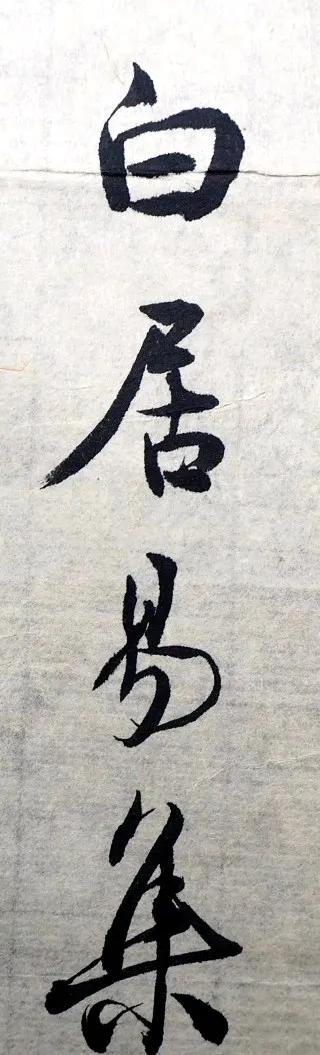 白居易集